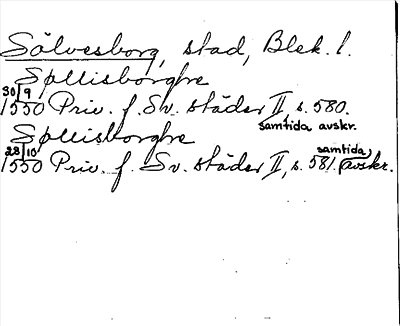 Sölvesborg, stad, Blek. l.
Spllisborghe
30/9
1550 Priv. f. Sv. städer II, s. 580.
samtida avskr.
Spllisborghe
28/10
1550 Priv. f. Sv. städer II, s. 581. samtida avskr.